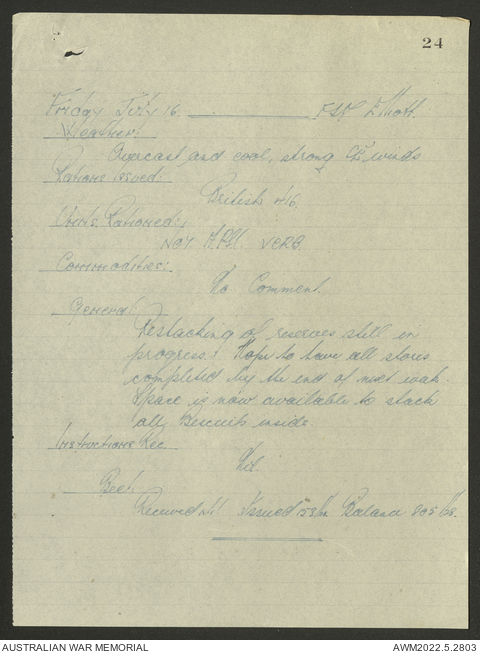 24
Friday July 16. FSD
Weather:
Overcast and cool, strong winds
Rations issued:
British
Units Rationed:
VERB.
Commodities:
No Comment.
General:
Restacking of reserves still in
progress. Hope to have all stores
completed by the end of next week.
Space is now available to stack
all biscuits inside.
Instructions Rec.
Nil.
Beer.
Received Nil Issued Balance
AUSTRALIAN WAR MEMORIAL
AWM2022.5.2803